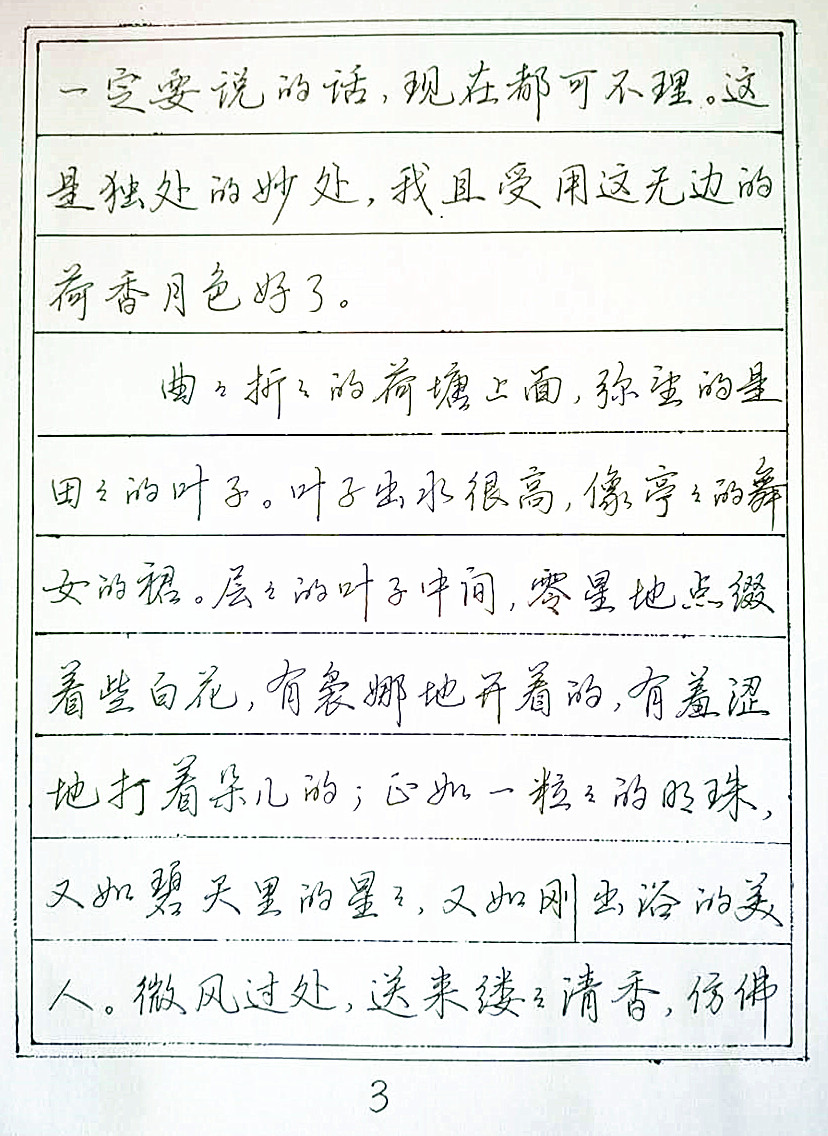 一定要说的话,现在都可不理。这
是独处的妙处,我且受用这无边的
荷香月色好了。
曲々折々的荷塘上面,弥望的是
田々的叶子。叶子出水很高,像亭々的舞
女的裙。层々的叶子中间,零星地点缀
着些白花,有袅娜地开着的,有羞涩
地打着朵儿的;正如一粒々的明珠,
又如碧天里的星々,又如刚出浴的美
人。微风过处,送来缕々清香,仿佛
3